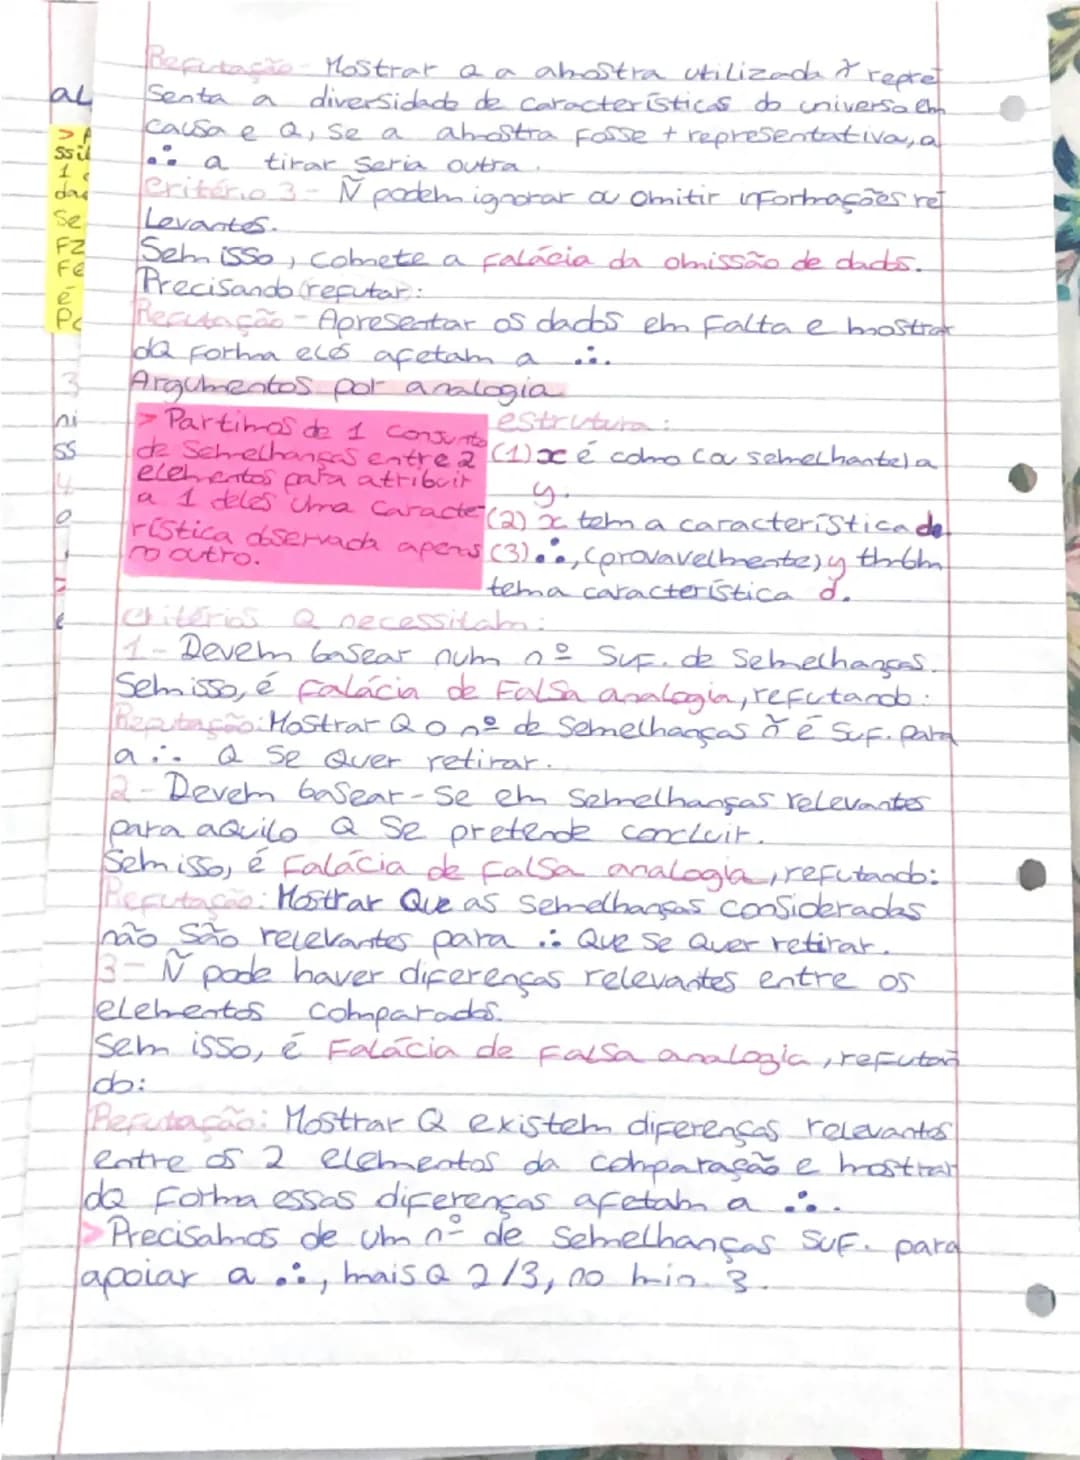 Refutação - Mostrar Q a amostra utilizada ñ repre
senta a diversidade de características do universo em
causa e Q, se a amostra fosse + representativa, a
∴ a tirar seria outra.
Critério 3 - Ñ podem ignorar ou omitir informações re
levantes.
Sem isso, comete a falácia da omissão de dados.
Precisando refutar:
Refutação - Apresentar os dados em falta e mostrar
dQ forma eles afetam a ∴.
Argumentos por analogia
> Partimos de 1 conjunto
de semelhanças entre 2
elementos para atribuir
a 1 deles uma caracte
rística observada apenas
no outro.
estrutura:
(1) x é como (ou semelhante) a
y.
(2) x tem a característica d.
(3) ∴, (provavelmente) y tmbm
tem a característica d.
Critérios Q necessitam:
1 - Devem basear num nº suf. de semelhanças.
Sem isso, é falácia de falsa analogia, refutando:
Refutação: Mostrar Q o nº de semelhanças ñ é suf. para
a ∴ Q se quer retirar.
2 - Devem basear-se em semelhanças relevantes
para aquilo Q se pretende concluir.
Sem isso, é falácia de falsa analogia, refutando:
Refutação: Mostrar Que as semelhanças consideradas
não são relevantes para ∴ Que se quer retirar.
3 - Ñ pode haver diferenças relevantes entre os
elementos comparados.
Sem isso, é falácia de falsa analogia, refutan
do:
Refutação: Mostrar Q existem diferenças relevantes
entre os 2 elementos da comparação e mostrar
dQ forma essas diferenças afetam a ∴.
> Precisamos de um nº de semelhanças suf. para
apoiar a ∴, mais Q 2/3, no min. 3.